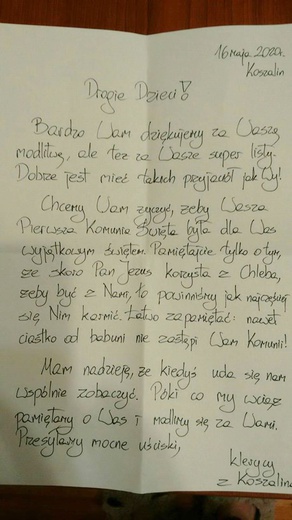 16 maja 2020r.
Koszalin
Drogie Dzieci!
Bardzo Wam dziękujemy za Waszą
modlitwę, ale też za Wasze super listy.
Dobrze jest mieć takich przyjaciół jak Wy!
Chcemy Wam życzyć, żeby Wasza
Pierwsza Komunia Święta była dla Was
wyjątkowym świętem. Pamiętajcie tylko o tym,
że skoro Pan Jezus korzysta z Chleba,
żeby być z Nami, to powinniśmy jak najczęściej
się Nim karmić. Łatwo zapamiętać: nawet
ciastko od babuni nie zastąpi Wam Komunii!
Mam nadzieję, że kiedyś uda się nam
wspólnie zobaczyć. Póki co my wciąż
pamiętamy o Was i modlimy się za Wami.
Przesyłamy mocne uściski,
klerycy
z Koszalina